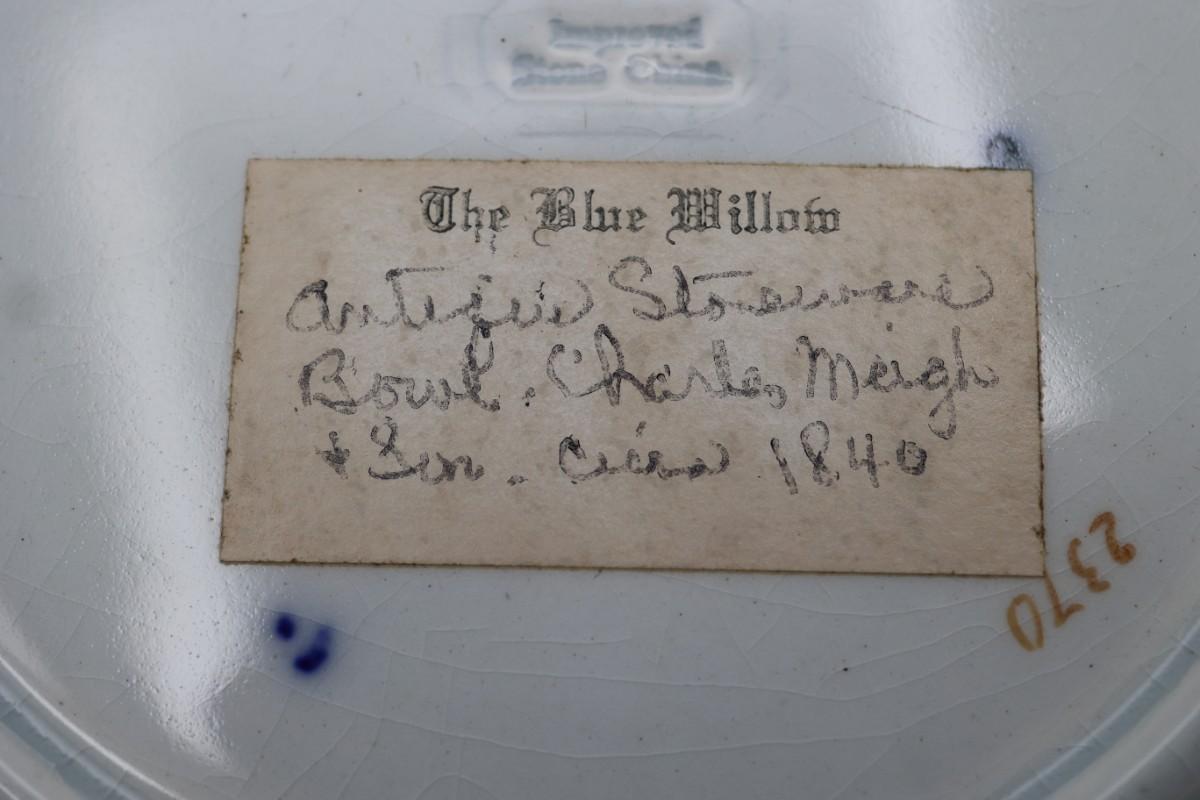 Improved
Stone China
The Blue Willow
Antique Stoneware
Bowl. Charles Meigh
& Son. Circa 1840
2370